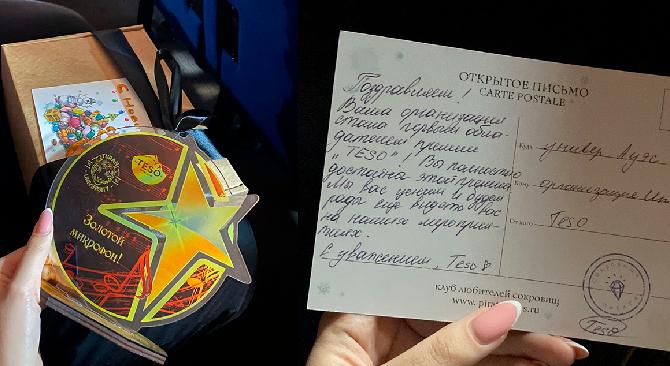 С Нов
TESO
Золотой
микрофон!
ОТКРЫТОЕ ПИСЬМО
CARTE POSTALE
Поздравляем!
Ваша организация
стала первым обла-
дателем премии
"TESO"! Вы полностью
достойны этой премии
Мы вас ценим и будем
рады ещё видеть вас
на наших мероприя-
тиях.
С уважением, Teso
Куда универ Лудс
Кому организация
От кого Teso
клуб любителей сокровищ
www.
Teso